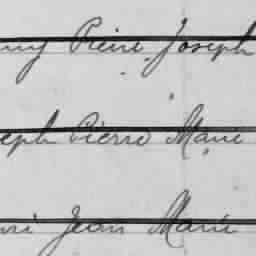 Pierre Joseph
eph Pierre Marie
ri Jean Marie